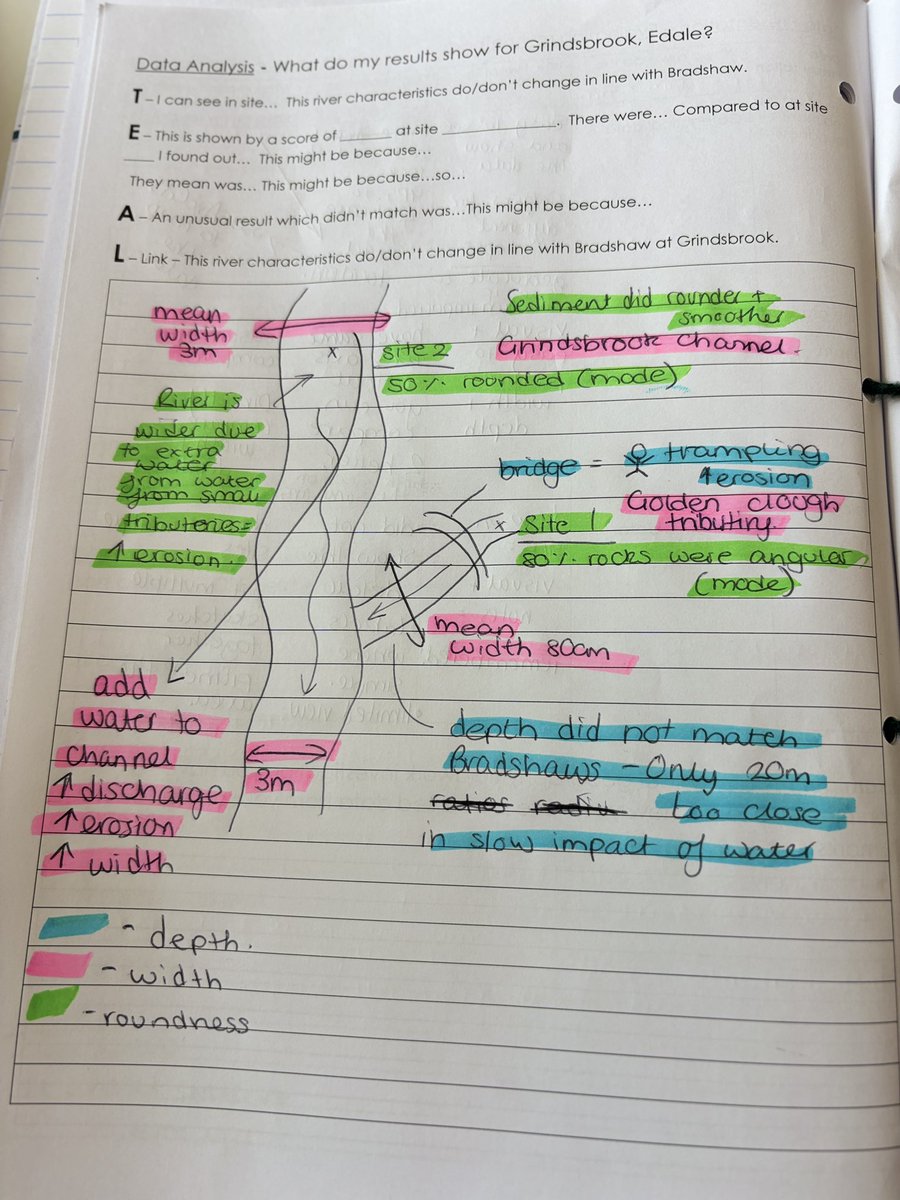 Data Analysis - What do my results show for Grindsbrook, Edale?
T – I can see in site... This river characteristics do/don't change in line with Bradshaw.
E – This is shown by a score of ______ at site ______________. There were... Compared to at site
____ I found out... This might be because...
They mean was... This might be because...so...
A – An unusual result which didn't match was...This might be because...
L – Link – This river characteristics do/don't change in line with Bradshaw at Grindsbrook.
mean
width
3m
Sediment did rounder +
smoother
x
site 2
Grindsbrook channel.
50% rounded (mode)
River is
wider due
to extra
water
from water
from small
tributeries=
↑ erosion.
bridge = trampling
↑erosion
Golden clough
tributiry.
x Site 1
80% rocks were angular
(mode)
mean
width 80cm
add
water to
channel
↑discharge
↑erosion
↑ width
3m
depth did not match
Bradshaws - Only 20m
too close
in slow impact of water
- depth.
- width
- roundness